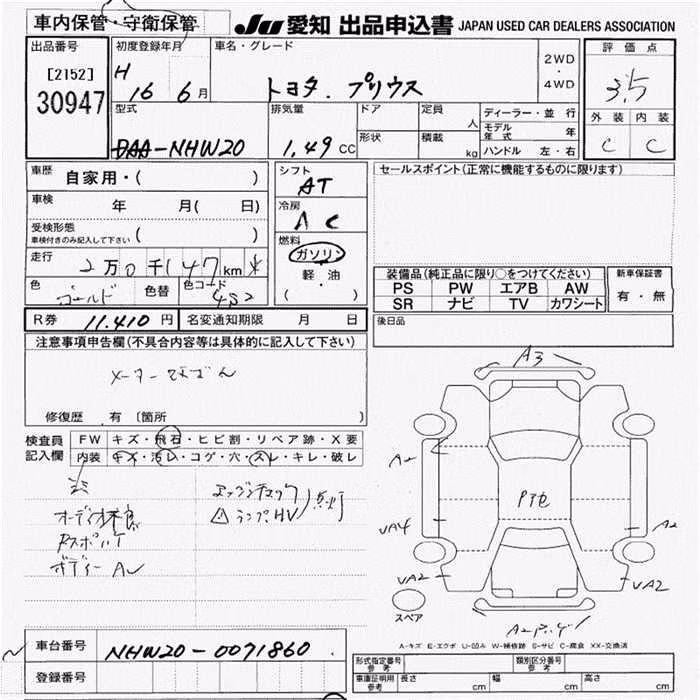 車内保管・守衛保管
JU 愛知 出品申込書 JAPAN USED CAR DEALERS ASSOCIATION
出品番号
[2152]
30947
初度登録年月
H 16 6月
車名・グレード
トヨタ. プリウス
2WD
・
4WD
評価点
3.5
外装 内装
C C
型式
DAA-NHW20
排気量
1.49 CC
ドア
形状
定員
人
積載
kg
ディーラー・並行
モデル年式 年
ハンドル 左・右
車歴
自家用・( )
車検
年 月( 日)
受検形態
車検付きのみ記入して下さい ( )
走行
2万0千147km
色
ゴールド
色替
色コード
4S2
シフト
AT
冷房
AC
燃料
ガソリン
軽・油
( )
セールスポイント(正常に機能するものに限ります)
装備品(純正品に限り○をつけてください)
PS PW エアB AW
SR ナビ TV カワシート
新車保証書
有・無
R券 11.410円
名変通知期限 月 日
後日品
注意事項申告欄(不具合内容等は具体的に記入して下さい)
修復歴 有 〔箇所 〕
検査員
記入欄
FW キズ・飛石・ヒビ割・リペア跡・X要
内装 キズ・汚レ・コゲ・穴・スレ・キレ・破レ
エンジンチェック
ランプ.HV 点灯
オーディオ
ボディー
A3
A2
VA4
VA2
A2
VA2
スペア
A-キズ E-エクボ U-凹み W-補修跡 S-サビ C-腐食 XX-交換済
車台番号 NHW20-0071860
登録番号
形式指定番号
参考
類別区分番号
参考
車庫証明用
参考
長さ cm 幅 cm 高さ cm